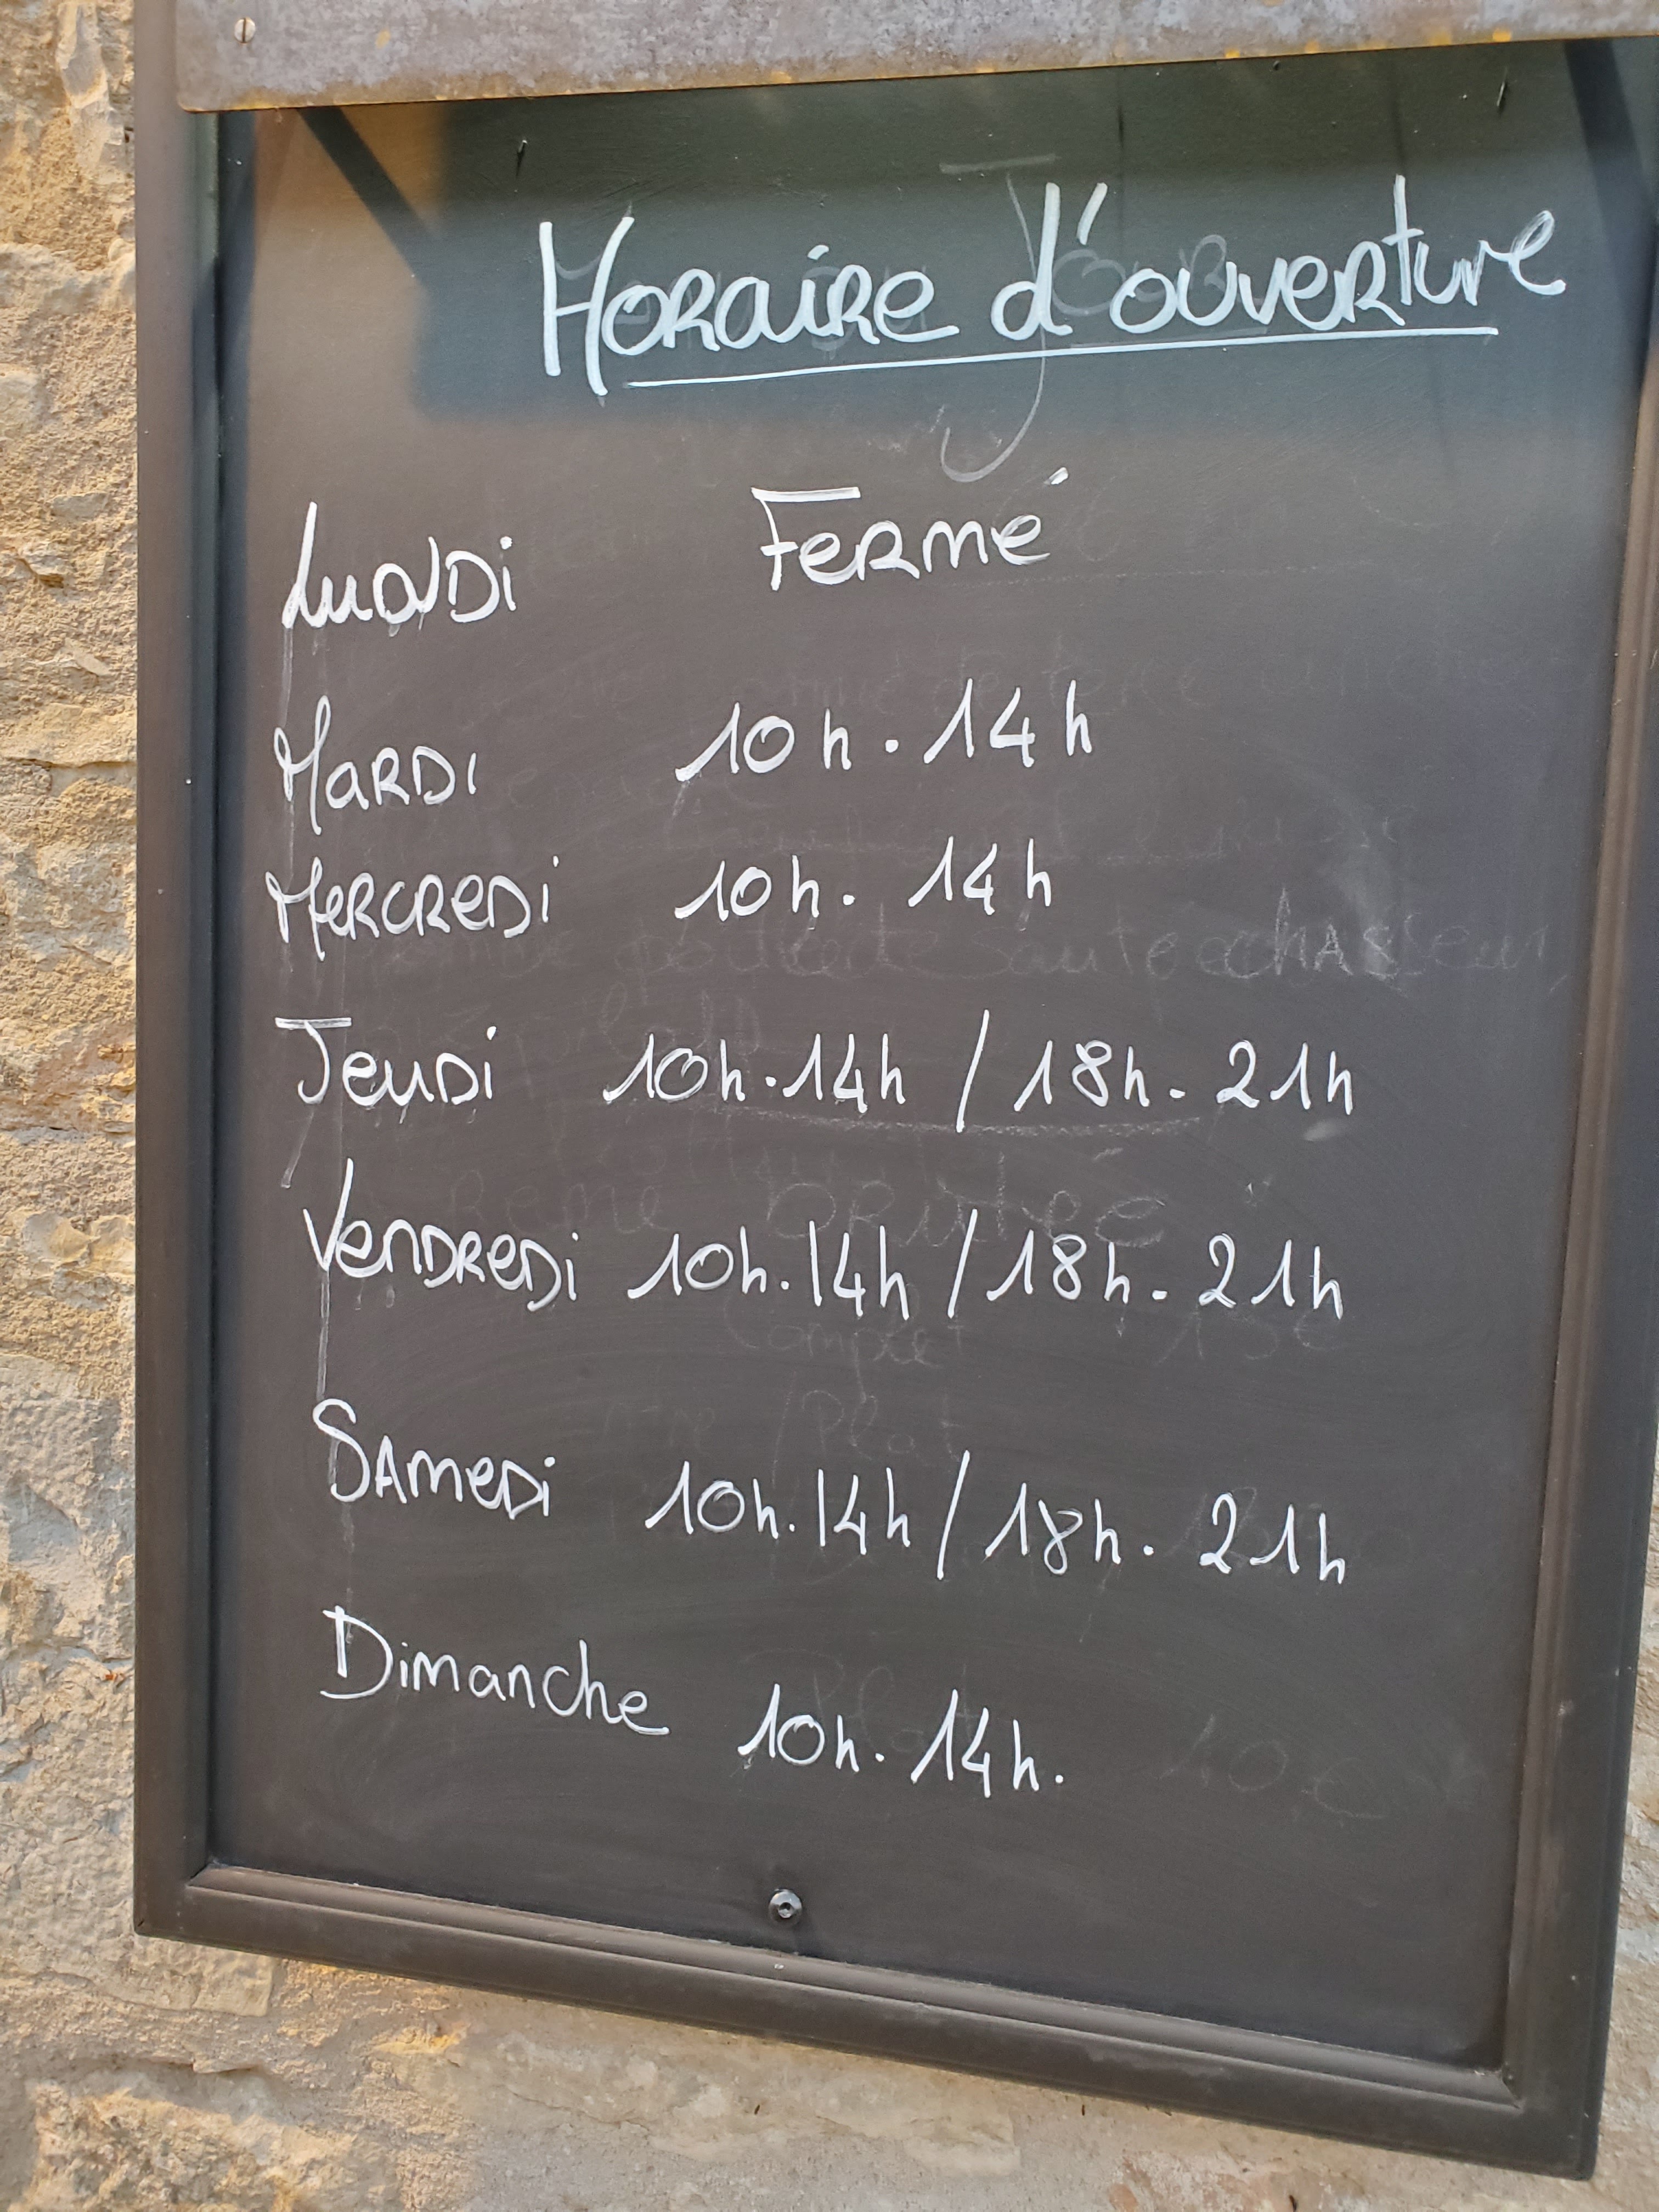 Horaire d'ouverture
Lundi Fermé
Mardi 10h.14h
Mercredi 10h. 14h
Jeudi 10h.14h / 18h. 21h
Vendredi 10h.14h / 18h. 21h
Samedi 10h.14h / 18h. 21h
Dimanche 10h. 14h.